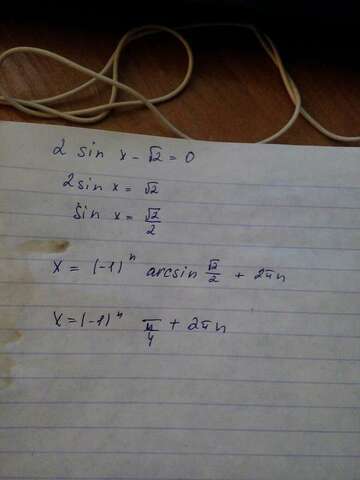 2 sin x - √2 = 0
2 sin x = √2
sin x = √2/2
x = (-1)ⁿ arcsin √2/2 + 2πn
x = (-1)ⁿ π/4 + 2πn